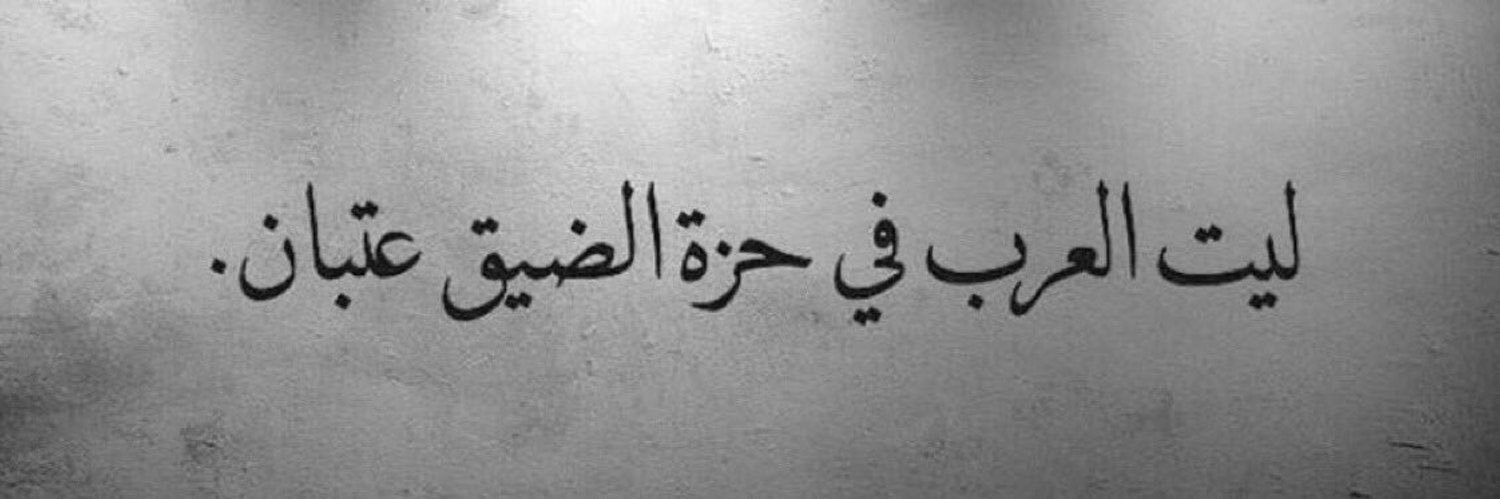 ليت العرب في حزة الضيق عتبان.